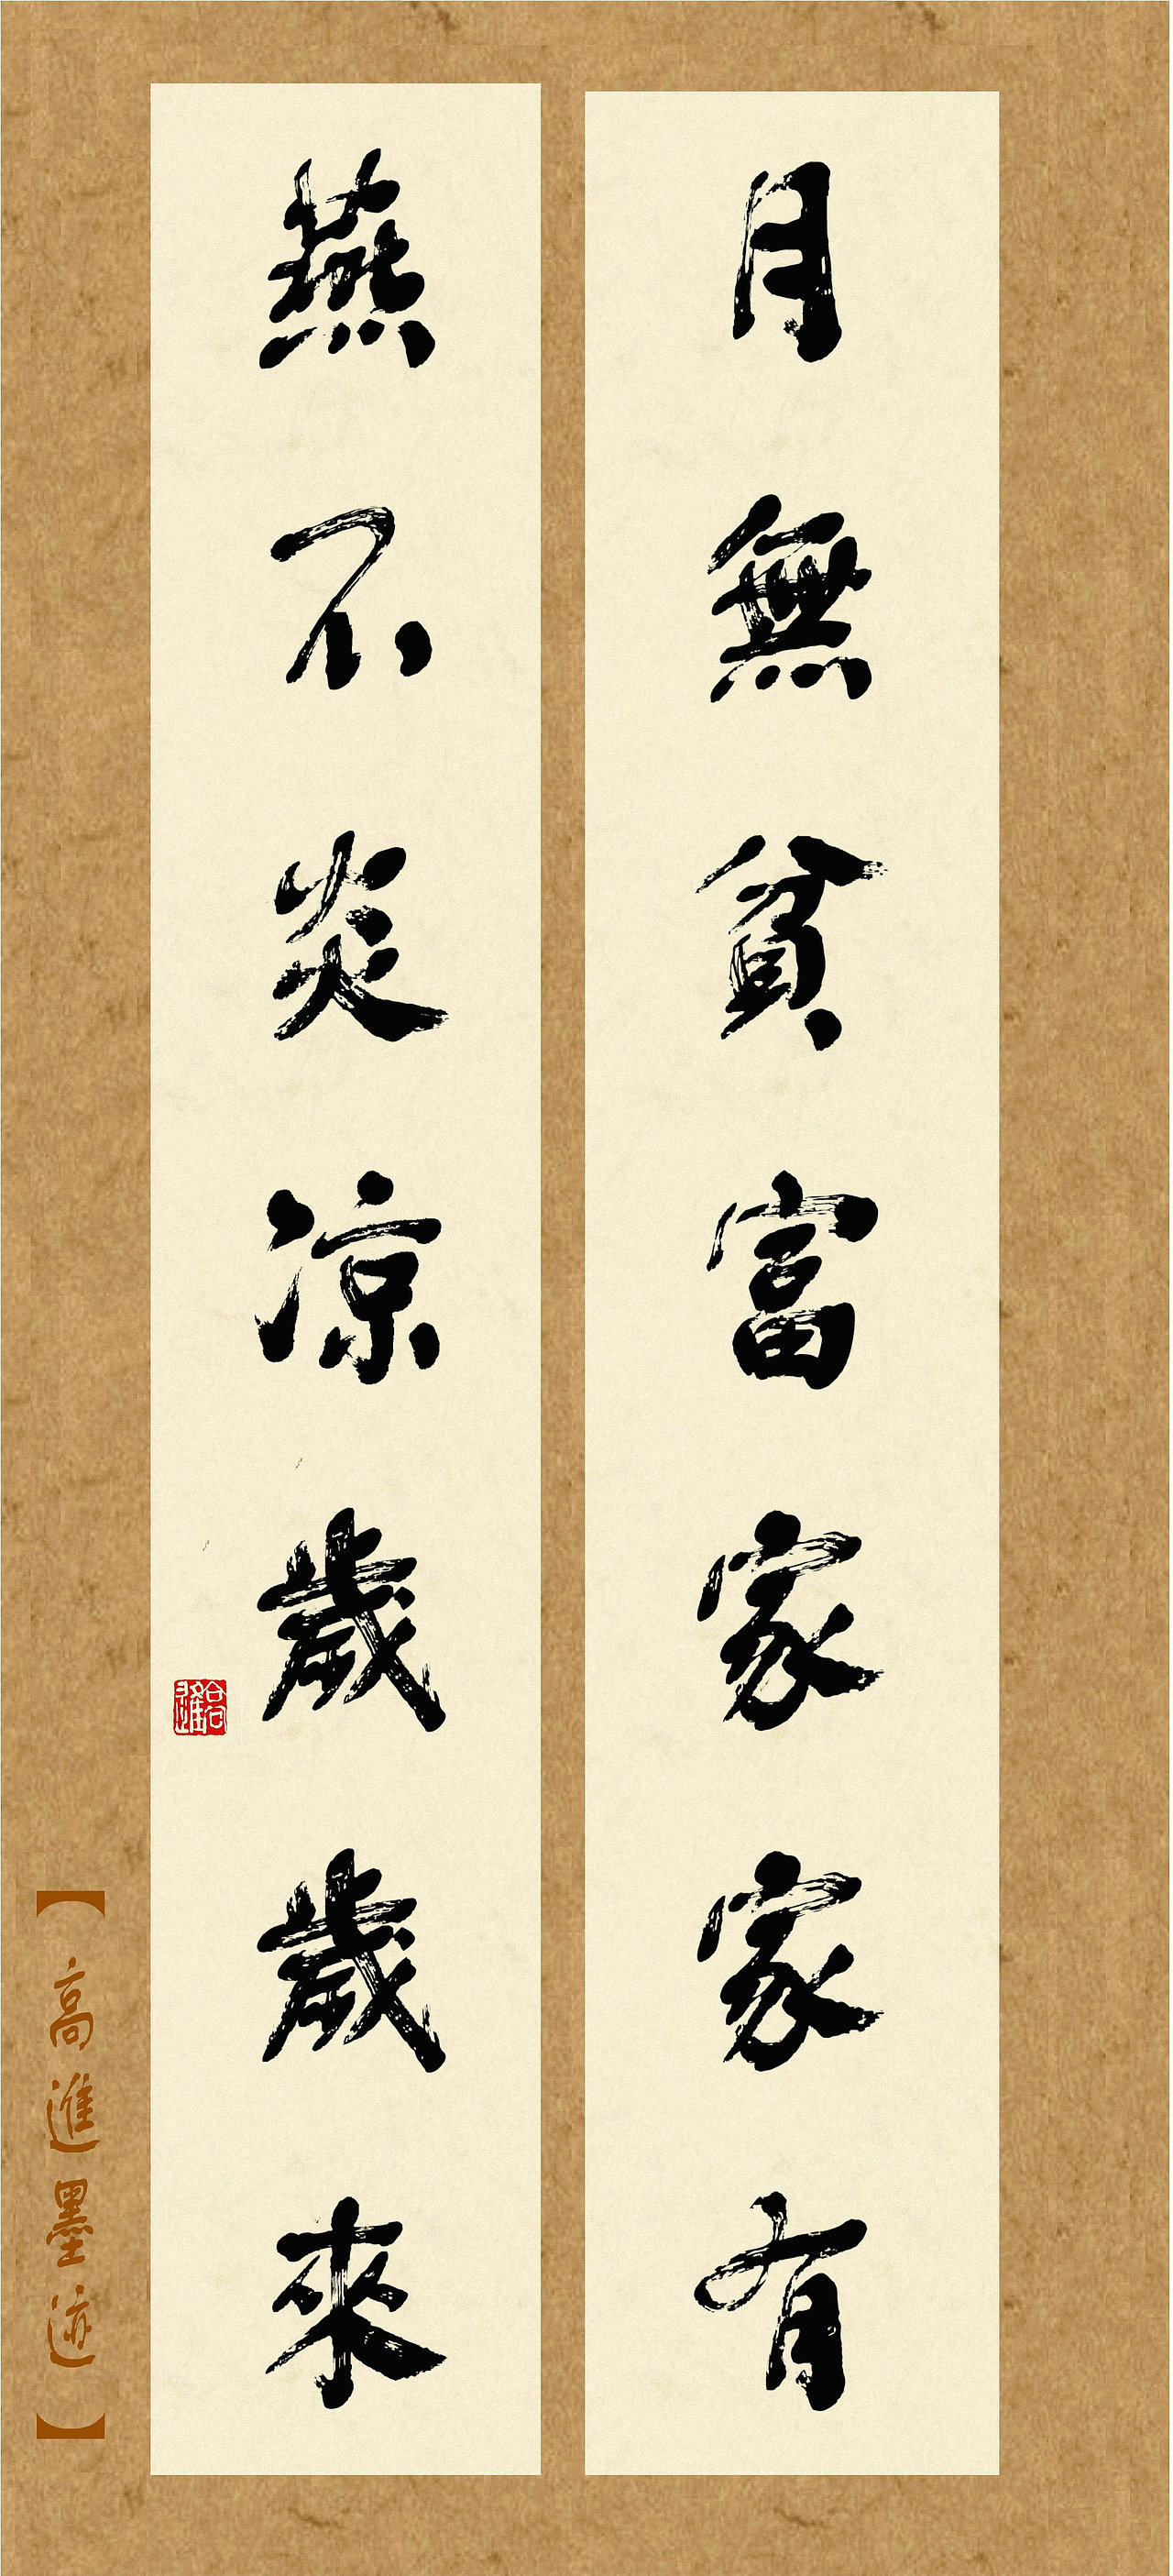 月無貧富家家有
燕不炎凉歲歲來
【高進墨迹】